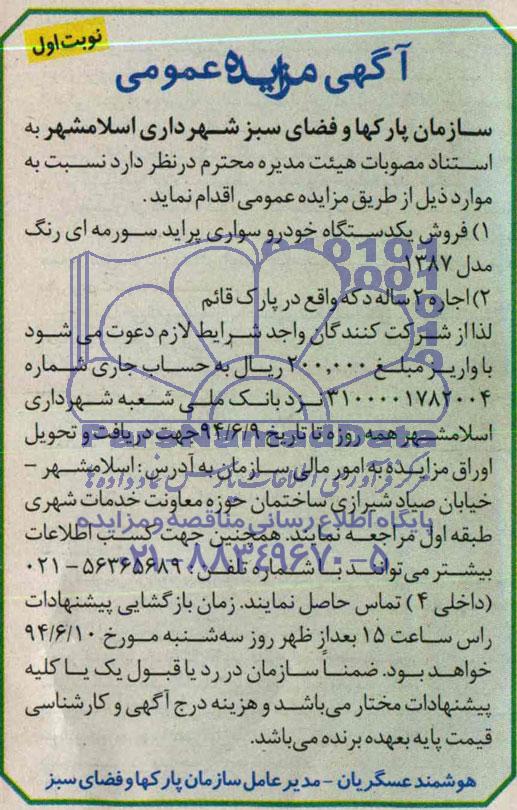 نوبت اول
آگهی مزایده عمومی
سازمان پارکها و فضای سبز شهرداری اسلامشهر به
استناد مصوبات هیئت مدیره محترم درنظر دارد نسبت به
موارد ذیل از طریق مزایده عمومی اقدام نماید.
۱) فروش یکدستگاه خودرو سواری پراید سورمه ای رنگ
مدل ۱۳۸۷
۲) اجاره ۲ ساله دکه واقع در پارک قائم
لذا از شرکت کنندگان واجد شرایط لازم دعوت می شود
با واریز مبلغ ۲۰۰,۰۰۰ ریال به حساب جاری شماره
۳۱۰۰۰۰۱۷۸۲۰۰۴ نزد بانک ملی شعبه شهرداری
اسلامشهر همه روزه تا تاریخ ۹۴/۶/۹ جهت دریافت و تحویل
اوراق مزایده به امور مالی سازمان به آدرس: اسلامشهر -
خیابان صیاد شیرازی ساختمان حوزه معاونت خدمات شهری
طبقه اول مراجعه نمایند. همچنین جهت کسب اطلاعات
بیشتر می توانند با شماره تلفن: ۵۶۳۶۵۶۸۹ - ۰۲۱
(داخلی ۴) تماس حاصل نمایند. زمان بازگشایی پیشنهادات
راس ساعت ۱۵ بعداز ظهر روز سه شنبه مورخ ۹۴/۶/۱۰
خواهد بود. ضمناً سازمان در رد یا قبول یک یا کلیه
پیشنهادات مختار می باشد و هزینه درج آگهی و کارشناسی
قیمت پایه بعهده برنده می باشد.
هوشمند عسگریان - مدیر عامل سازمان پارکها و فضای سبز
ParsNamadData
پایگاه اطلاع رسانی مناقصه و مزایده
۰۲۱-۸۸۳۴۹۶۷۰-۵